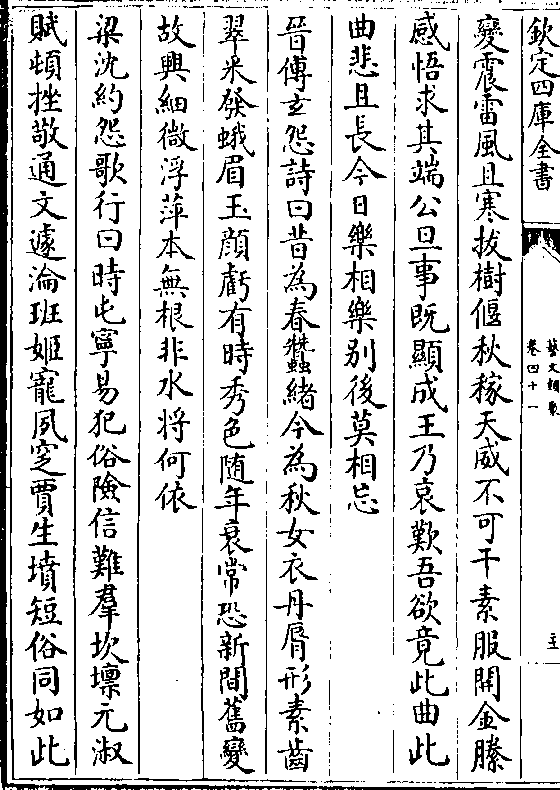 欽定四庫全書
藝文類聚
卷四十一
變震雷風且寒拔樹偃秋稼天威不可干素服開金縢
感悟求其端公旦事既顯成王乃哀歎吾欲竟此曲此
曲悲且長今日樂相樂别後莫相忘
晉傅玄怨詩曰昔為春蠶緒今為秋女衣丹脣形素齒
翠采發蛾眉玉顔虧有時秀色随年衰常恐新間舊變
故興細微浮萍本無根非水将何依
梁沈約怨歌行曰時屯寧易犯俗險信難羣坎壈元淑
賦頓挫敬通文遽淪班姬寵夙窆賈生墳短俗同如此